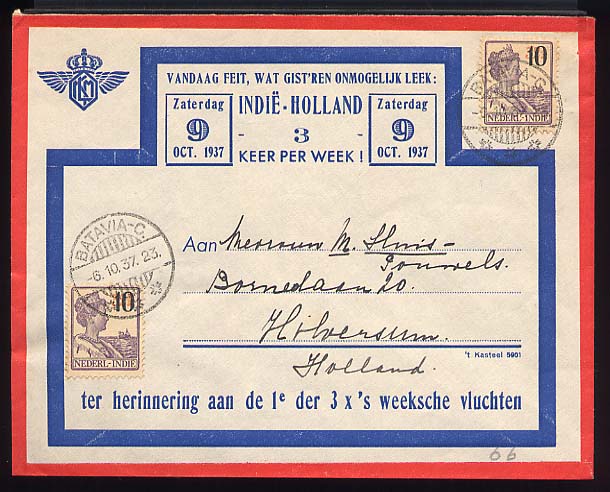 KLM
10
BATAVIA-C.
NEDERL-INDIE
VANDAAG FEIT, WAT GIST'REN ONMOGELIJK LEEK:
Zaterdag
9
OCT. 1937
INDIË-HOLLAND
- 3 -
KEER PER WEEK!
Zaterdag
9
OCT. 1937
BATAVIA-C.
-6.10.37.23.
10
NEDERL-INDIE
Aan Mevrouw M. Sluis-
Pouwels.
Borneolaan 20.
Hilversum.
't Kasteel 5901
Holland.
ter herinnering aan de 1e der 3 x's weeksche vluchten
66